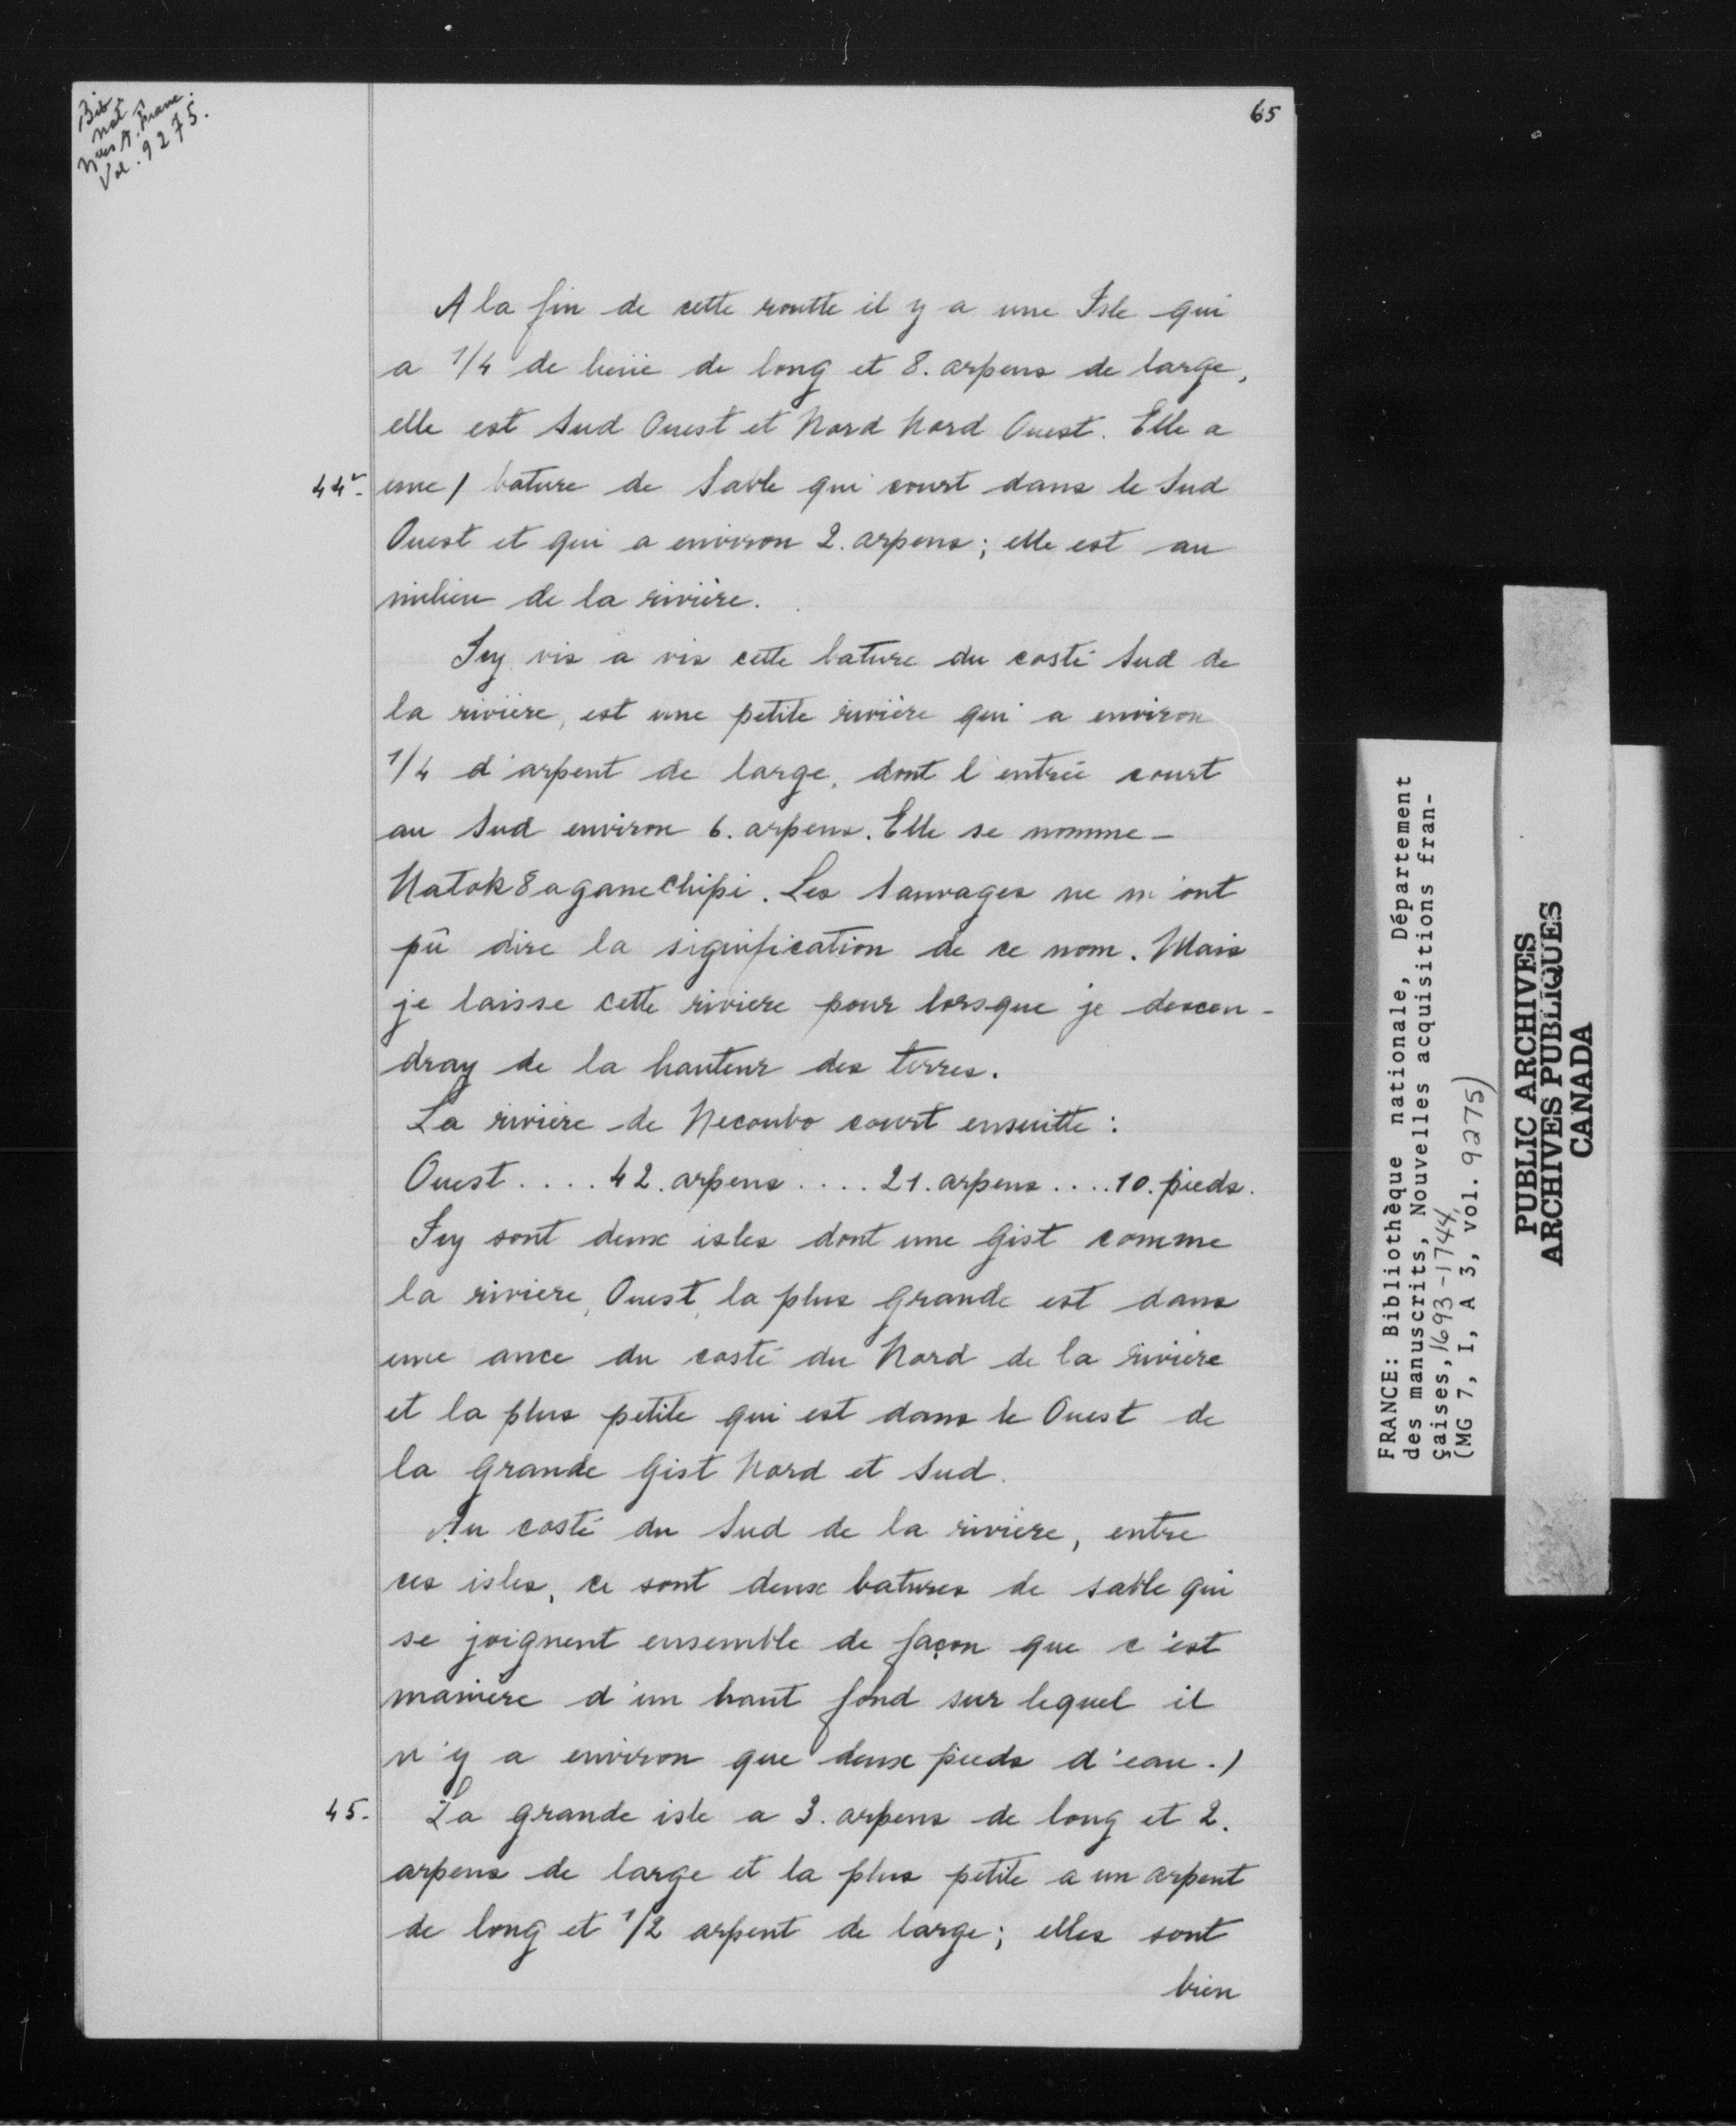 Bib.
nat.
Nlles A. Franc.
Vol. 9275.
65
A la fin de cette routte il y a une Isle qui
a 1/4 de lieüe de long et 8. arpens de large,
elle est Sud Ouest et Nord Nord Ouest. Elle a
44v- une / bature de Sable qui court dans le Sud
Ouest et qui a environ 2. arpens ; elle est au
milieu de la rivière.
Icy vis a vis cette bature du costé Sud de
la rivière, est une petite rivière qui a environ
1/4 d'arpent de large, dont l'entrée court
au Sud environ 6. arpens. Elle se nomme -
Natok8aganechipi. Les Sauvages ne m'ont
pû dire la signification de ce nom. Mais
je laisse cette riviere pour lorsque je descen-
dray de la hauteur des terres.
La rivière de Necoubo court ensuitte :
Ouest .... 42. arpens .... 21. arpens .... 10. pieds.
Icy sont deux isles dont une Gist comme
la riviere, Ouest, la plus grande est dans
une ance du costé du Nord de la rivière
et la plus petite qui est dans le Ouest de
la grande Gist Nord et Sud.
Au costé du Sud de la rivière, entre
ces isles, ce sont deux batures de sable qui
se joignent ensemble de façon que c'est
manière d'un haut fond sur lequel il
n'y a environ que deux pieds d'eau. /
45. La grande isle a 3. arpens de long et 2.
arpens de large et la plus petite a un arpent
de long et 1/2 arpent de large ; elles sont
bien
FRANCE: Bibliothèque nationale, Département
des manuscrits, Nouvelles acquisitions fran-
çaises, 1693-1744,
(MG 7, I, A 3, vol. 9275)
PUBLIC ARCHIVES
ARCHIVES PUBLIQUES
CANADA